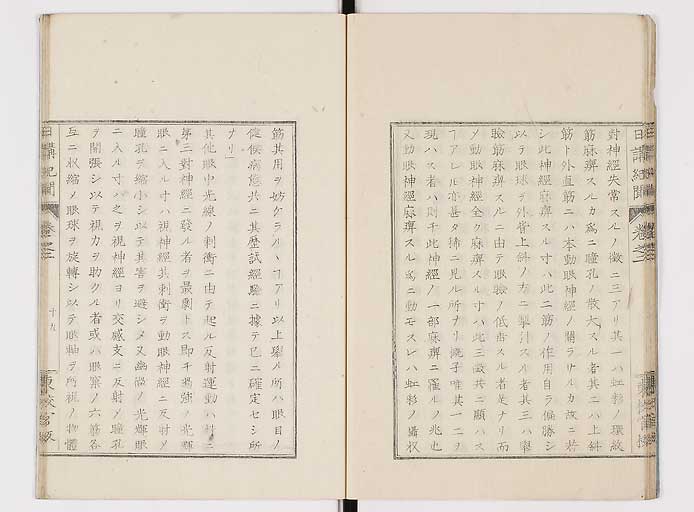 對神經失常スルノ徴ニ三アリ其一ハ虹彩ノ環紋
筋麻痹スルカ爲ニ瞳孔ノ散大スル者其二ハ上斜
筋ト外直筋ニハ本動眼神經ノ關ラサルカ故ニ若
シ此神經麻痹スル寸ハ此二筋ノ作用自ラ偏勝シ
以テ眼球ヲ外眥上斜ノ方ニ牽引スル者其三ハ擧
瞼筋麻痹スルニ由テ眼瞼ノ低垂スル者是ナリ而
メ動眼神經全ク麻痹スル寸ハ此三徴共ニ顯ハス
ヿアレル亦甚タ稀ニ見ル所ナリ概子唯其一二ヲ
現ハス者ハ則チ此神經ノ一部麻痹ニ罹ルノ兆也
又動眼神經麻痹スル爲ニ動モスレハ虹彩ノ攝收
日講紀聞 卷之二
筋其用ヲ妨ケラルヽヿアリ以上擧ル所ハ眼目ノ
健候病態共ニ其歴試經驗ニ據テ已ニ確定セシ所
ナリ
其他眼中光線ノ刺衝ニ由テ起ル反射運動ハ特ニ
第三對神經ニ發ル者ヲ最劇トス即チ過強ノ光輝
眼ニ入ル寸ハ視神經其刺衝ヲ動眼神經ニ反射メ
瞳孔ヲ縮小シ以テ其害ヲ避シメ又幽微ノ光輝眼
ニ入ル寸ハ之ヲ視神經ヨリ交感支ニ反射メ瞳孔
ヲ開張シ以テ視力ヲ助クル者或ハ眼窠ノ六筋各
互ニ收縮メ眼球ヲ旋轉シ以テ眼軸ヲ所視ノ物體
日講紀聞 卷之二 十五